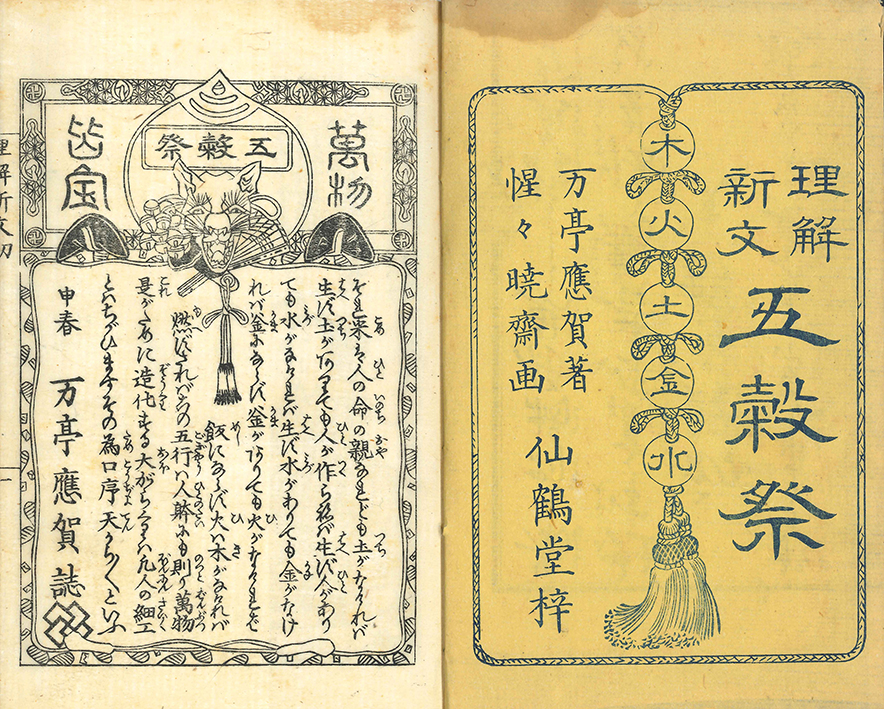 理解
新文
五穀祭
木
火
土
金
水
万亭應賀著
惺々暁齋画
仙鶴堂梓
萬物
五穀祭
それ米は人の命の親なれども土がなけれバ
生ず土がありても人が作らねバ生ず人があり
ても水がなけれバ生ず水がありても金がなけ
れバ釜にならず釜がありても火がなけれバ
飯にならず火ハ木がなけれバ
燃ずされバこの五行ハ人躰にも則り萬物
是がために造化する大がらくりハ凡人の細工
とハちがひますその為口序天からくといふ
申春 万亭應賀誌
理解新文初